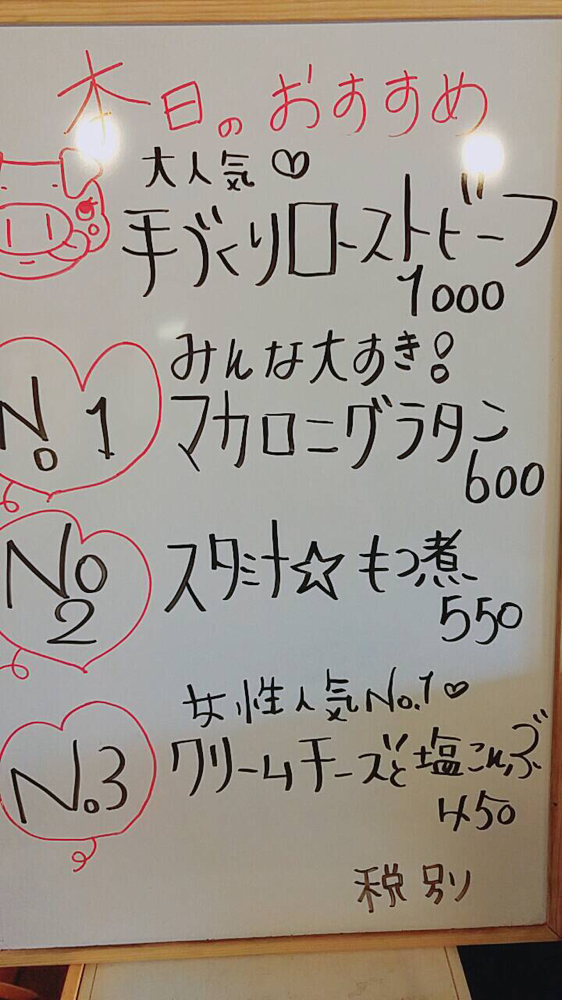 本日のおすすめ
大人気♡
手づくりローストビーフ
1000
みんな大すき!
No1
マカロニグラタン
600
No2
スタミナ☆もつ煮
550
女性人気No.1♡
No.3
クリームチーズと塩こんぶ
450
税別